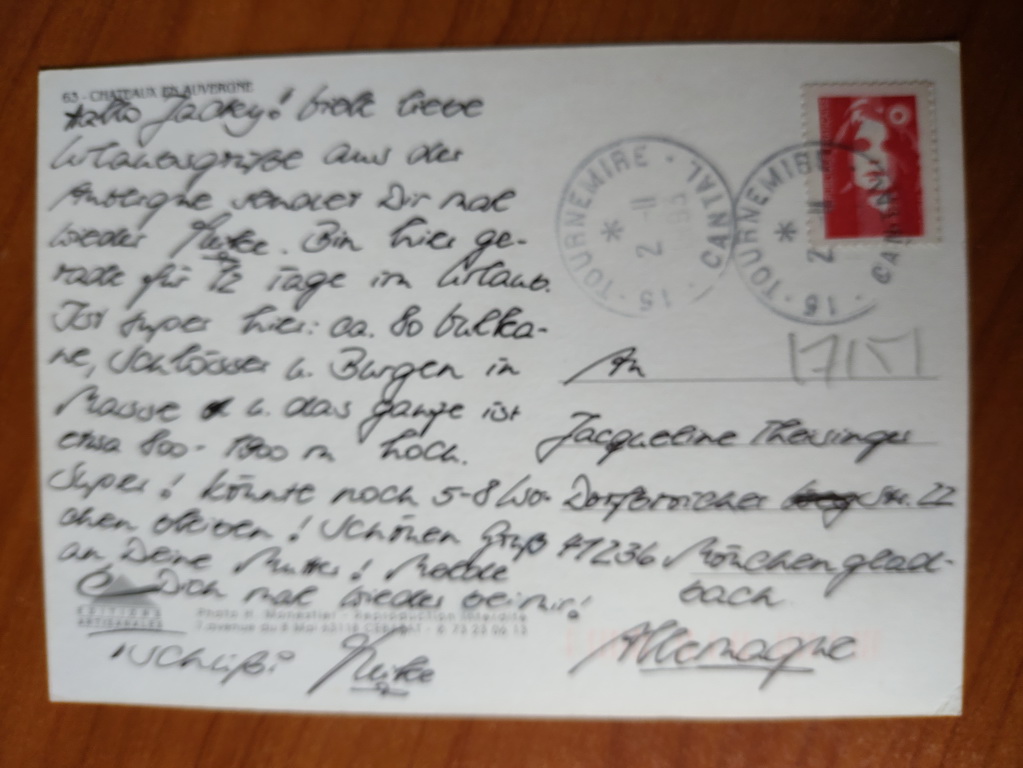 63 - CHATEAUX EN AUVERGNE
Hallo Jacky! Viele liebe
Urlaubsgrüße aus der
Auvergne sendet Dir mal
wieder Meike. Bin hier ge-
rade für 12 Tage im Urlaub.
Ist super hier: ca. 80 Vulka-
ne, Schlösser u. Burgen in
Masse u. das ganze ist
etwa 800-1800 m hoch.
Super! Könnte noch 5-8 Wo-
chen bleiben! Schönen Gruß
an Deine Mutter! Melde
Dich mal wieder bei mir!
Tschüßi Meike
EDITIONS
ARTISANALES
Photo H. Monestier - Reproduction Interdite
7, avenue du 8 Mai 63118 CEBAZAT - 73 25 06 13
TOURNEMIRE · CANTAL
2 -11
15
TOURNEMIRE
2 -11
CANTAL
15
An
Jacqueline Theisinger
Dorfbroicher Str. 22
41236 Mönchenglad-
bach
Allemagne